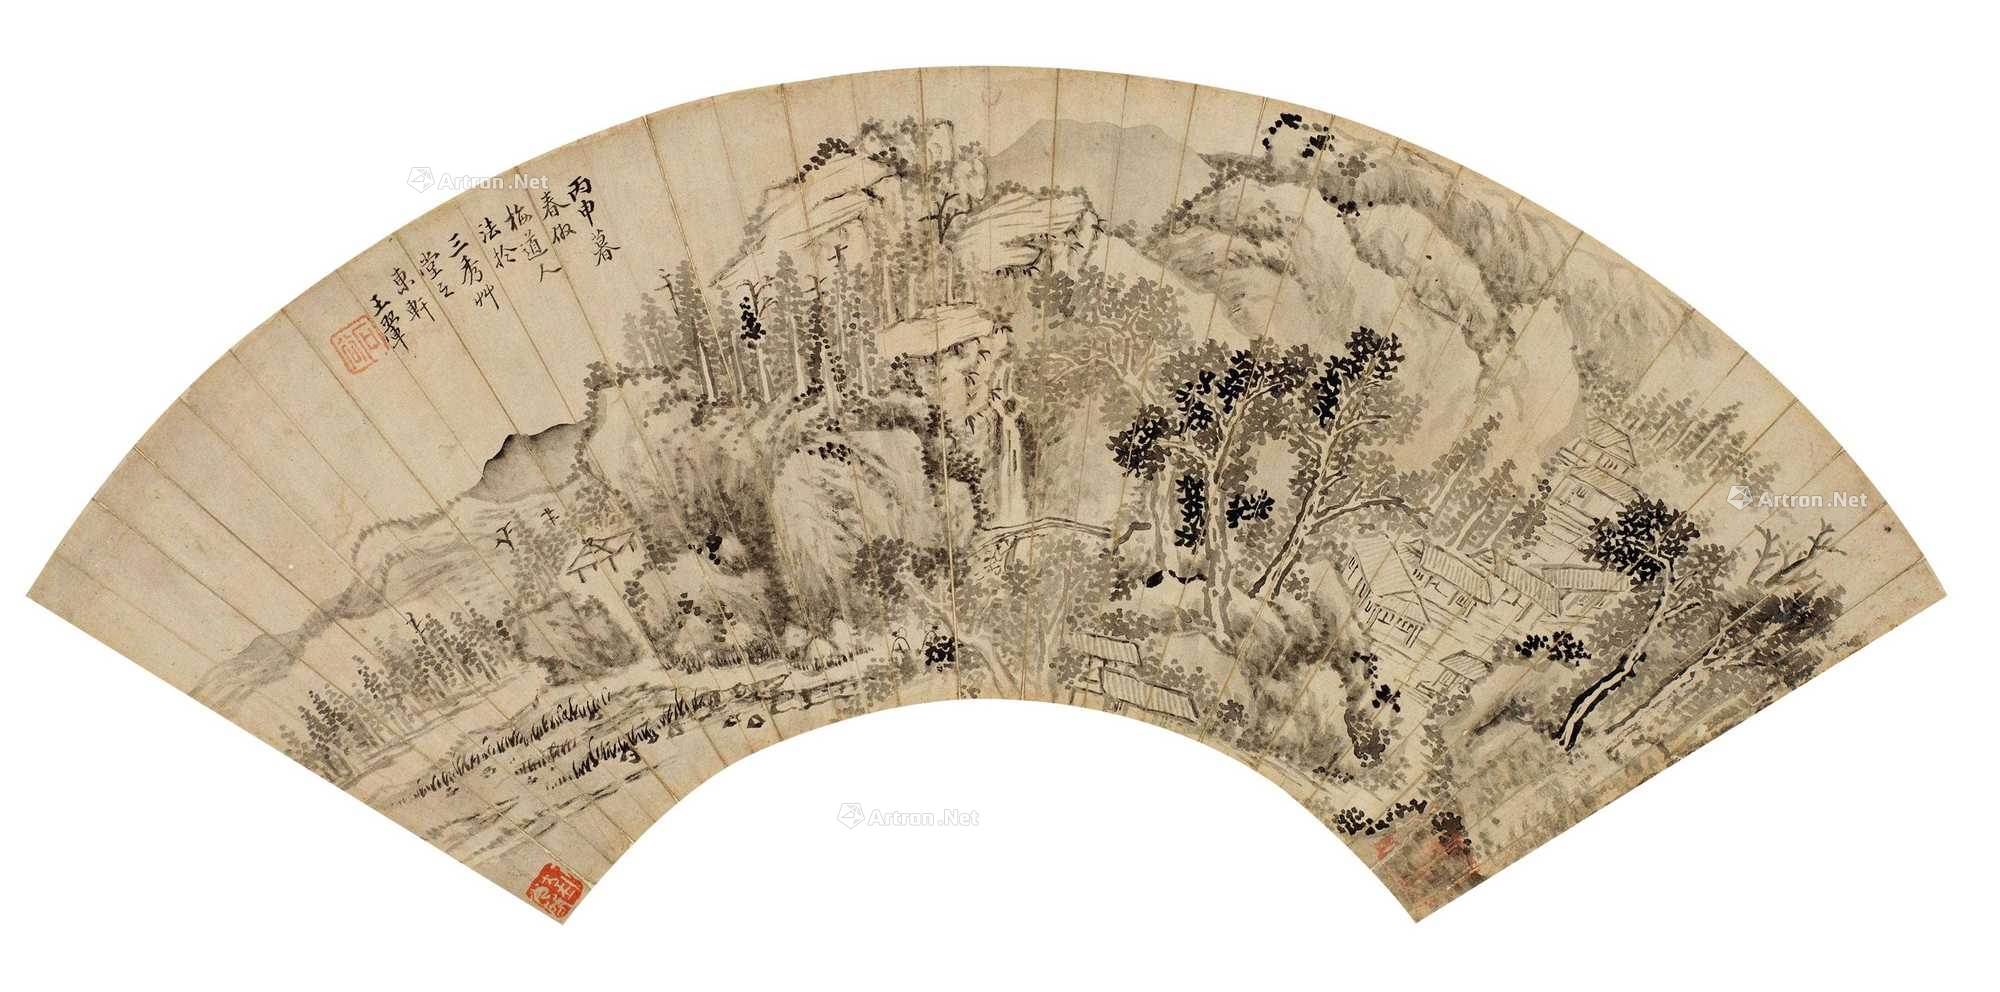 丙申暮
春倣
梅道人
法於
三秀艸
堂之
東軒
王翬
Artron.Net
Artron.Net
Artron.Net